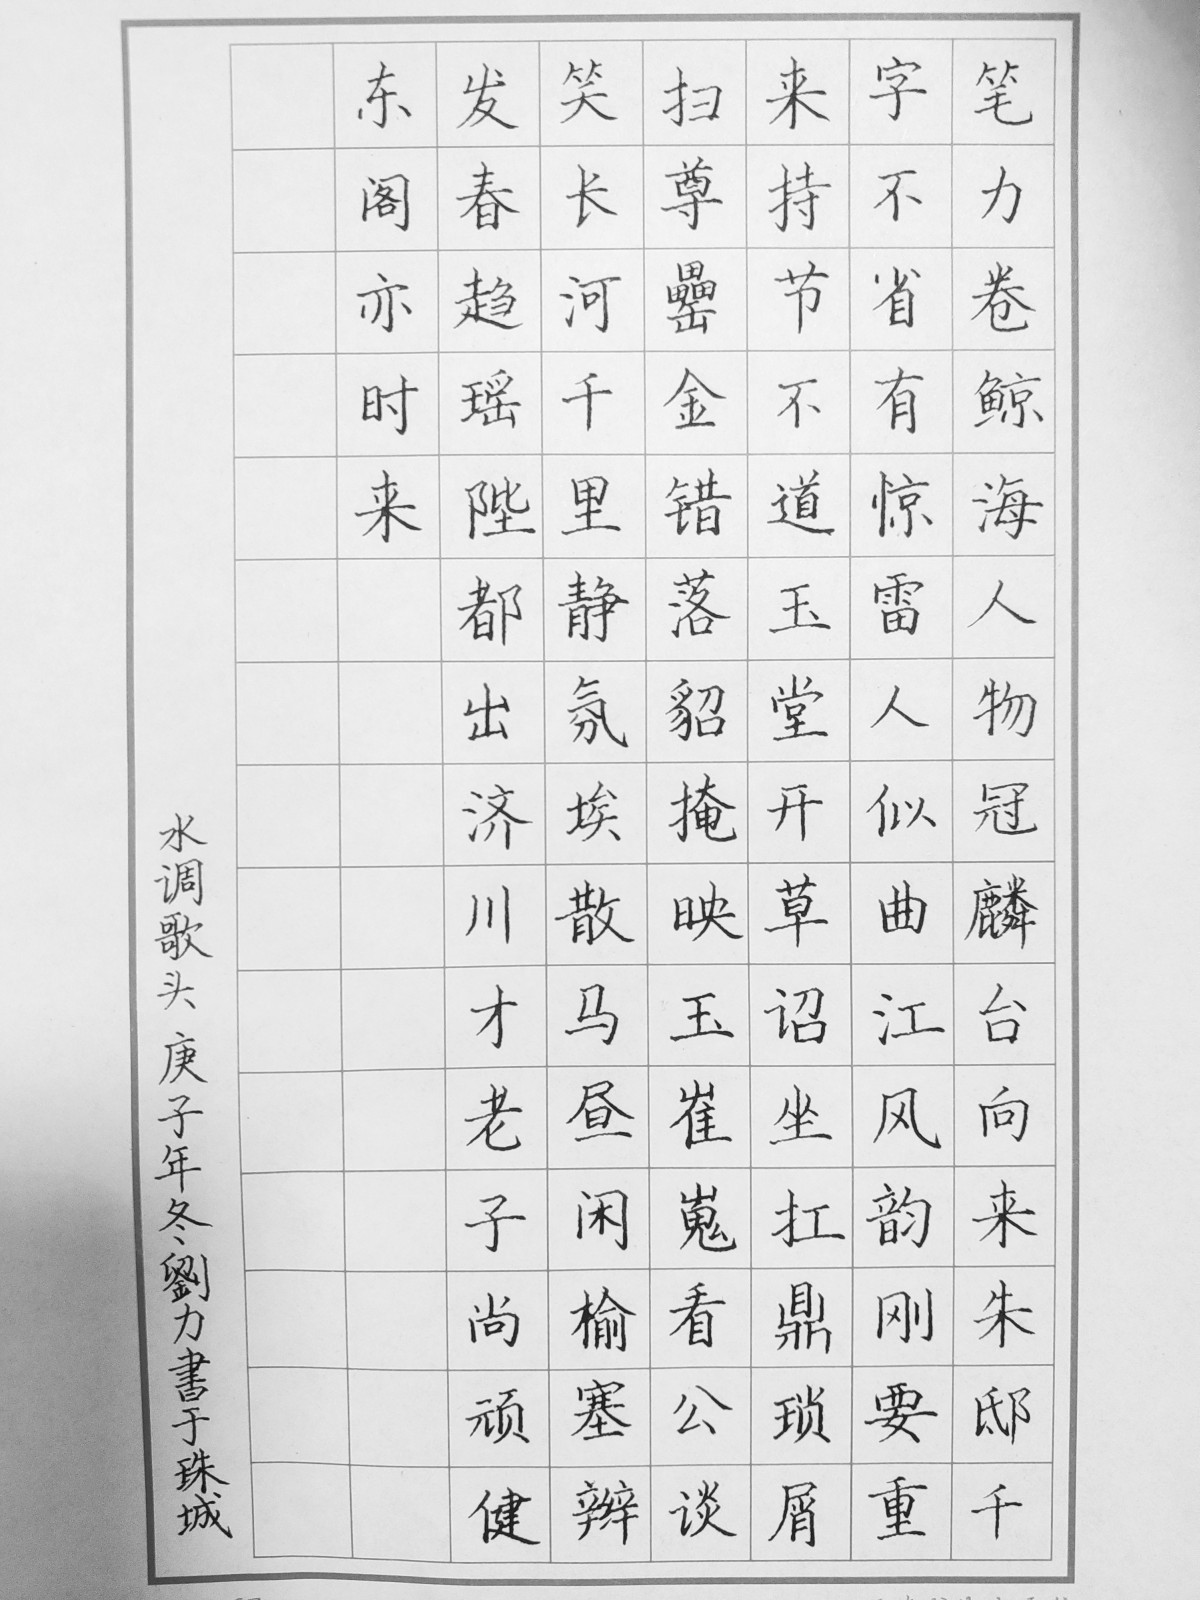 笔力卷鲸海人物冠麟台向来朱邸千
字不省有惊雷人似曲江风韵刚要重
来持节不道玉堂开草诏坐扛鼎琐屑
扫尊罍金错落貂掩映玉崔嵬看公谈
笑长河千里静氛埃散马昼闲榆塞辫
发春趋瑶陛都出济川才老子尚顽健
东阁亦时来
水调歌头 庚子年冬劉力書于珠城